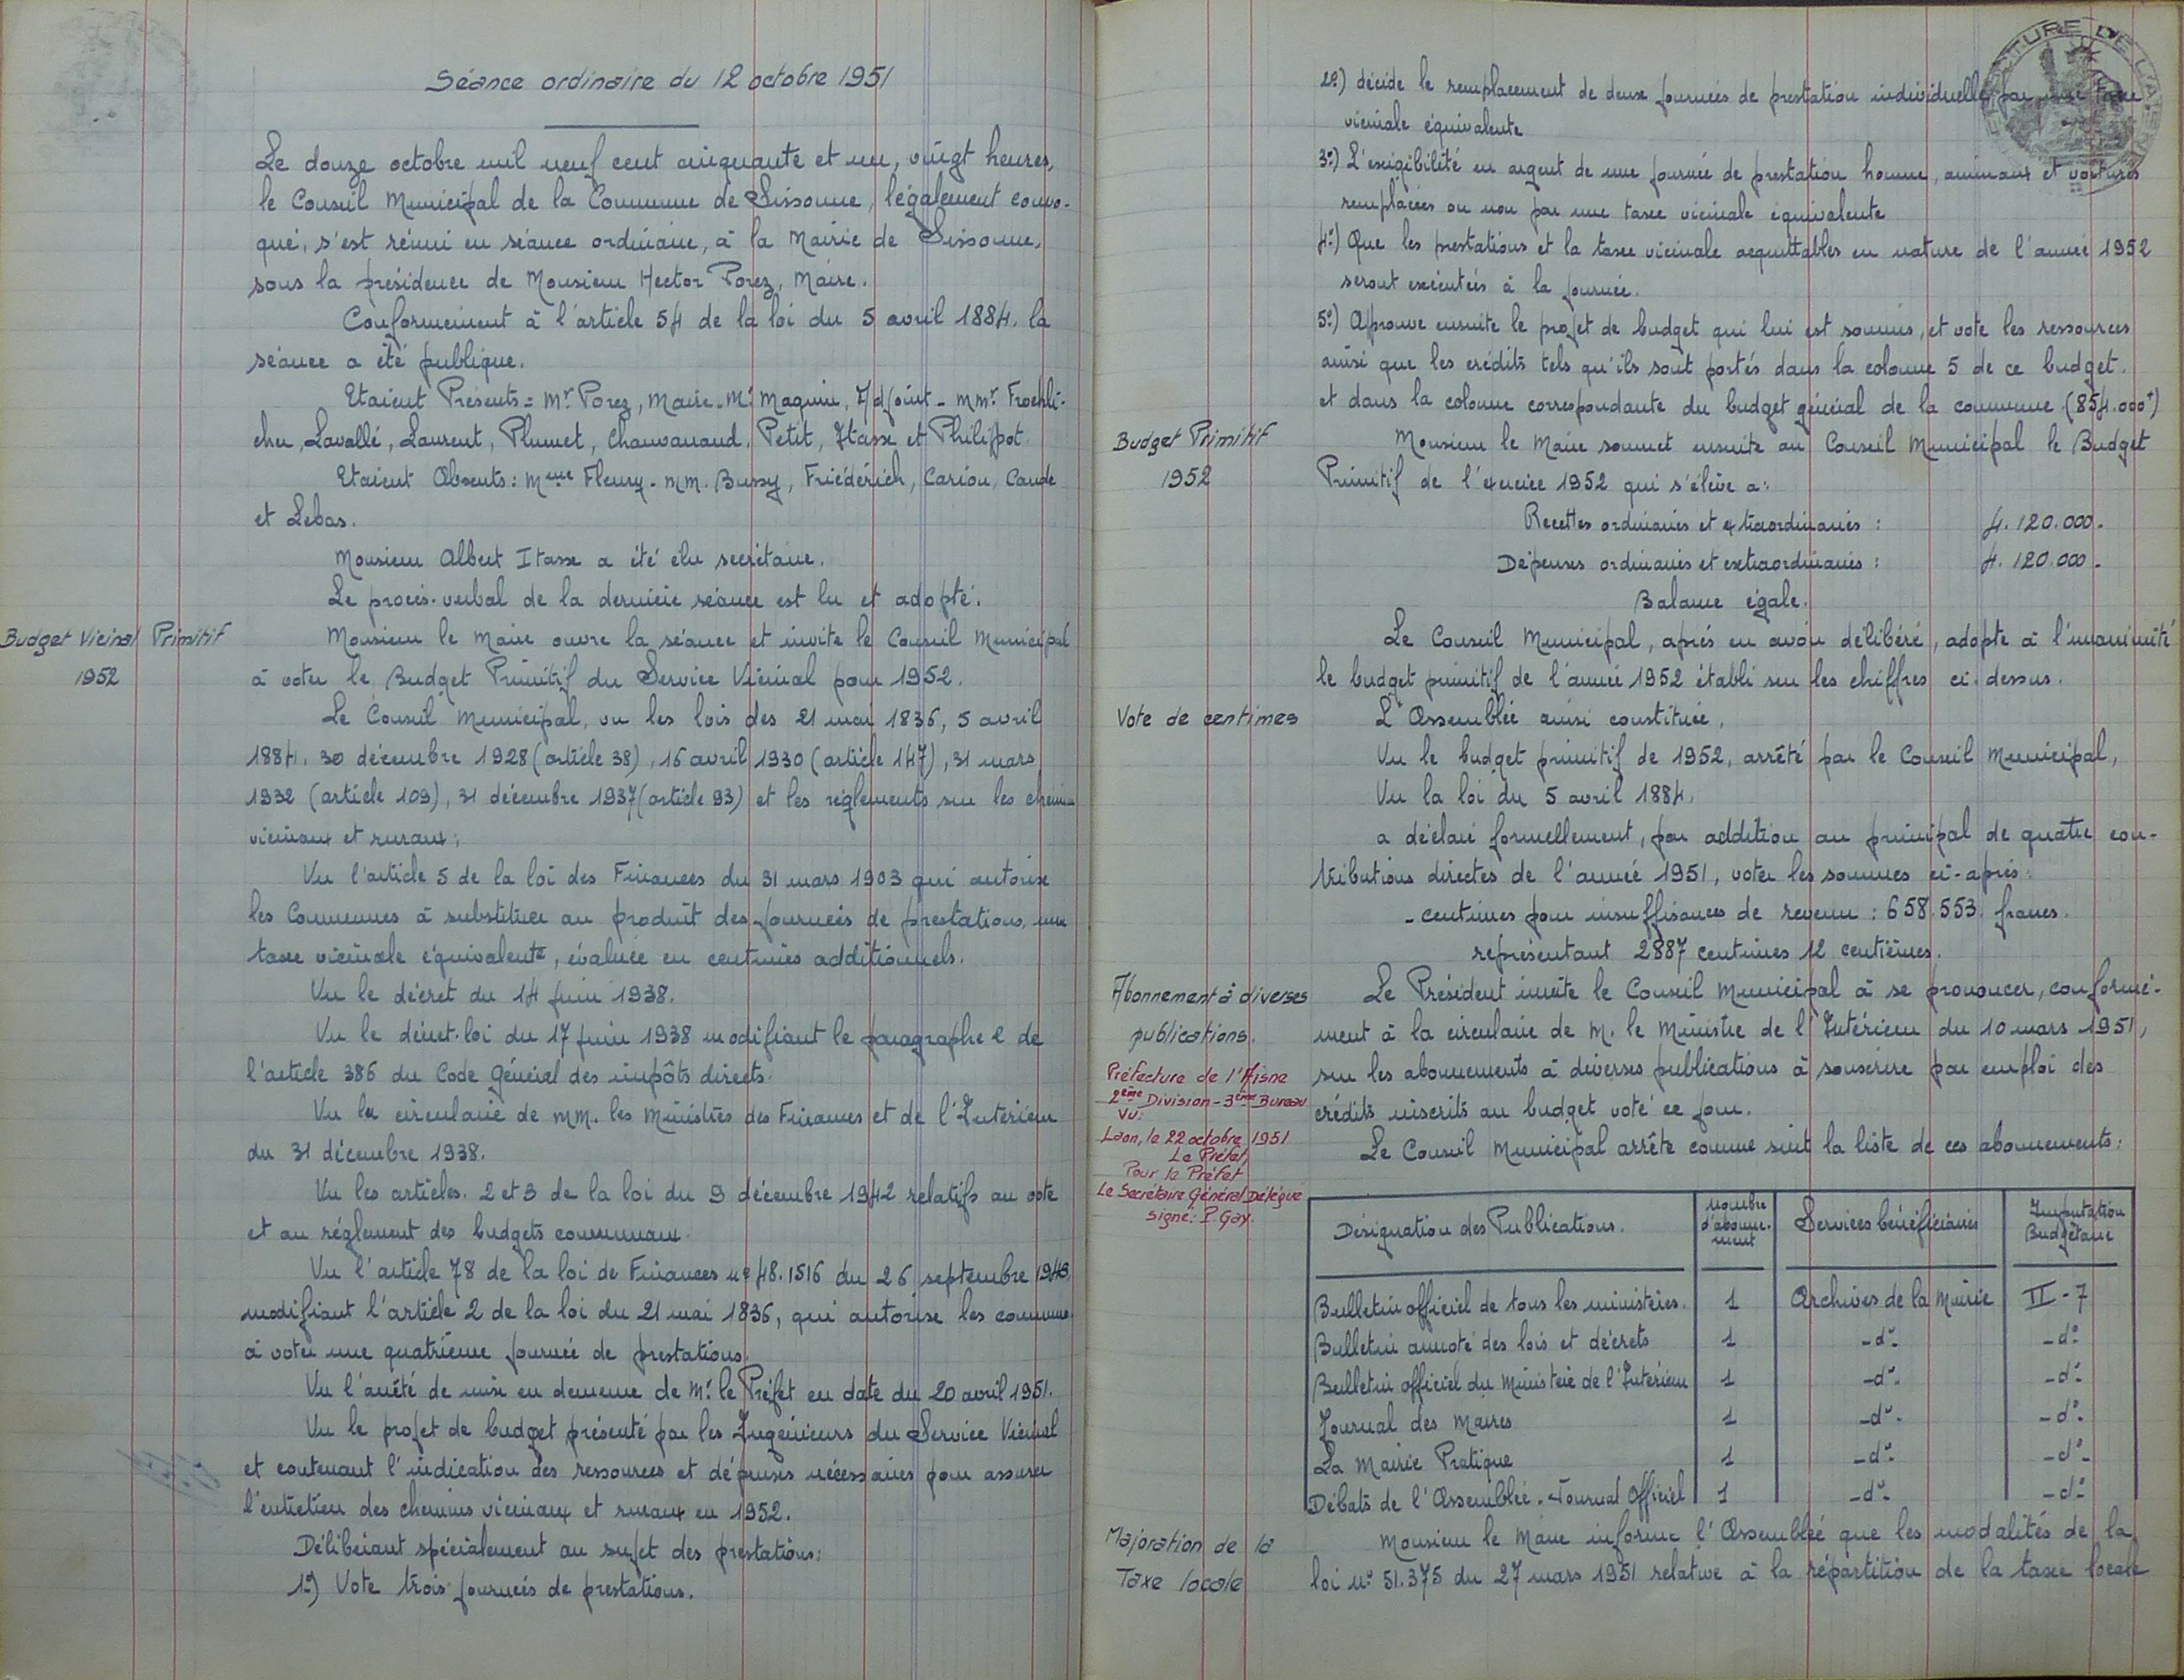 Séance ordinaire du 12 octobre 1951
Le douze octobre mil neuf cent cinquante et un, vingt heures,
le Conseil Municipal de la Commune de Sissonne, légalement convo-
qué, s'est réuni en séance ordinaire, à la Mairie de Sissonne,
sous la présidence de Monsieur Hector Porez, Maire.
Conformément à l'article 54 de la loi du 5 avril 1884, la
séance a été publique.
Etaient Présents = Mr Porez, Maire - Mr Maquin, Adjoint - MMr. Froehli-
cher, Lavallé, Laurent, Plumet, Chauvanaud, Petit, Itasse et Philippot.
Etaient Absents : Mme Fleury - MM. Bussy, Friédérich, Cariou, Caude
et Lebas.
Monsieur Albert Itasse a été élu secrétaire.
Le procès-verbal de la dernière séance est lu et adopté.
Budget Vicinal Primitif
1952
Monsieur le Maire ouvre la séance et invite le Conseil Municipal
à voter le Budget Primitif du Service Vicinal pour 1952.
Le Conseil Municipal, vu les lois des 21 mai 1836, 5 avril
1884, 30 décembre 1928 (article 38), 16 avril 1930 (article 147), 31 mars
1932 (article 109), 31 décembre 1937 (article 93) et les règlements sur les chemins
vicinaux et ruraux ;
Vu l'article 5 de la loi des Finances du 31 mars 1903 qui autorise
les Communes à substituer au produit des journées de prestations, une
taxe vicinale équivalente, évaluée en centimes additionnels.
Vu le décret du 14 juin 1938.
Vu le décret-loi du 17 juin 1938 modifiant le paragraphe 2 de
l'article 386 du Code Général des impôts directs.
Vu la circulaire de MM. les Ministres des Finances et de l'Intérieur
du 31 décembre 1938.
Vu les articles. 2 et 3 de la loi du 9 décembre 1942 relatifs au vote
et au réglement des budgets communaux.
Vu l'article 78 de la loi de Finances n° 48.1516 du 26 septembre 1948,
modifiant l'article 2 de la loi du 21 mai 1836, qui autorise les communes
à voter une quatrième journée de prestations.
Vu l'arrêté de mise en demeure de Mr le Préfet en date du 20 avril 1951.
Vu le projet de budget présenté par les Ingénieurs du Service Vicinal
et contenant l'indication des ressources et dépenses nécessaires pour assurer
l'entretien des chemins vicinaux et ruraux en 1952.
Délibérant spécialement au sujet des prestations :
1°) Vote trois journées de prestations.
2°) décide le remplacement de deux journées de prestation individuelle par une taxe
vicinale équivalente
3°) L'exigibilité en argent de une journée de prestation homme, animaux et voitures
remplacées ou non par une taxe vicinale équivalente
4°) Que les prestations et la taxe vicinale acquittables en nature de l'année 1952
seront exécutées à la journée.
5°) Approuve ensuite le projet de budget qui lui est soumis, et vote les ressources
ainsi que les crédits tels qu'ils sont portés dans la colonne 5 de ce budget.
et dans la colonne correspondante du budget général de la commune. (854.000 f)
Budget Primitif
1952
Monsieur le Maire soumet ensuite au Conseil Municipal le Budget
Primitif de l'exercice 1952 qui s'élève à :
Recettes ordinaires et extraordinaires : 4.120.000.
Dépenses ordinaires et extraordinaires : 4.120.000.
Balance égale.
Le Conseil Municipal, après en avoir délibéré, adopte à l'unanimité
le budget primitif de l'année 1952 établi sur les chiffres ci-dessus.
Vote de centimes
L'Assemblée ainsi constituée,
Vu le budget primitif de 1952, arrêté par le Conseil Municipal,
Vu la loi du 5 avril 1884.
a déclaré formellement, par addition au principal de quatre con-
tributions directes de l'année 1951, voter les sommes ci-après :
- centimes pour insuffisances de revenu : 658.553. francs.
représentant 2887 centimes 12 centièmes.
Abonnement à diverses
publications.
Le Président invite le Conseil Municipal à se prononcer, conformé-
ment à la circulaire de M. le Ministre de l'Intérieur du 10 mars 1951,
sur les abonnements à diverses publications à souscrire par emploi des
crédits inscrits au budget voté ce jour.
Préfecture de l'Aisne
2ème Division - 3ème Bureau
Vu :
Laon, le 22 octobre 1951
Le Préfet,
Pour le Préfet
Le Secrétaire Général Délégué
signé : P. Gay.
Le Conseil Municipal arrête comme suit la liste de ces abonnements :
Désignation des Publications. Nombre d'abonne-ment Services bénéficiaires Imputation Budgétaire
Bulletin officiel de tous les ministères. 1 Archives de la Mairie II - 7
Bulletin annoté des lois et décrets 1 - d° - - d° -
Bulletin officiel du Ministère de l'Intérieur 1 - d° - - d° -
Journal des Maires 1 - d° - - d° -
La Mairie Pratique 1 - d° - - d° -
Débats de l'Assemblée - Journal Officiel 1 - d° - - d° -
Majoration de la
Taxe locale
Monsieur le Maire informe l'Assemblée que les modalités de la
loi n° 51.375 du 27 mars 1951 relative à la répartition de la taxe locale